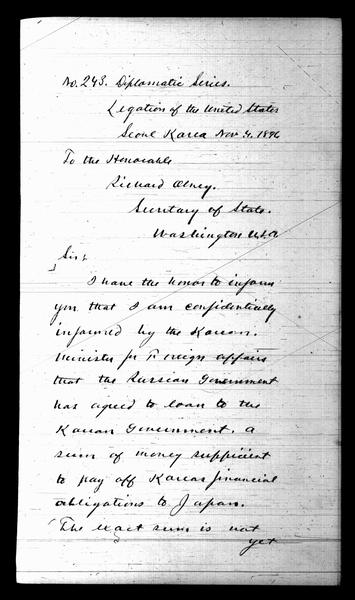 No. 243. Diplomatic Series.
Legation of the United States
Seoul Korea Nov 4, 1896
To the Honorable
Richard Olney.
Secretary of State.
Washington U.S.A
Sir;
I have the honor to inform
you that I am confidentially
informed by the Korean
Minister for Foreign affairs
that the Russian Government
has agreed to loan to the
Korean Government, a
sum of money sufficient
to pay off Koreas financial
obligations to Japan.
The exact sum is not
yet